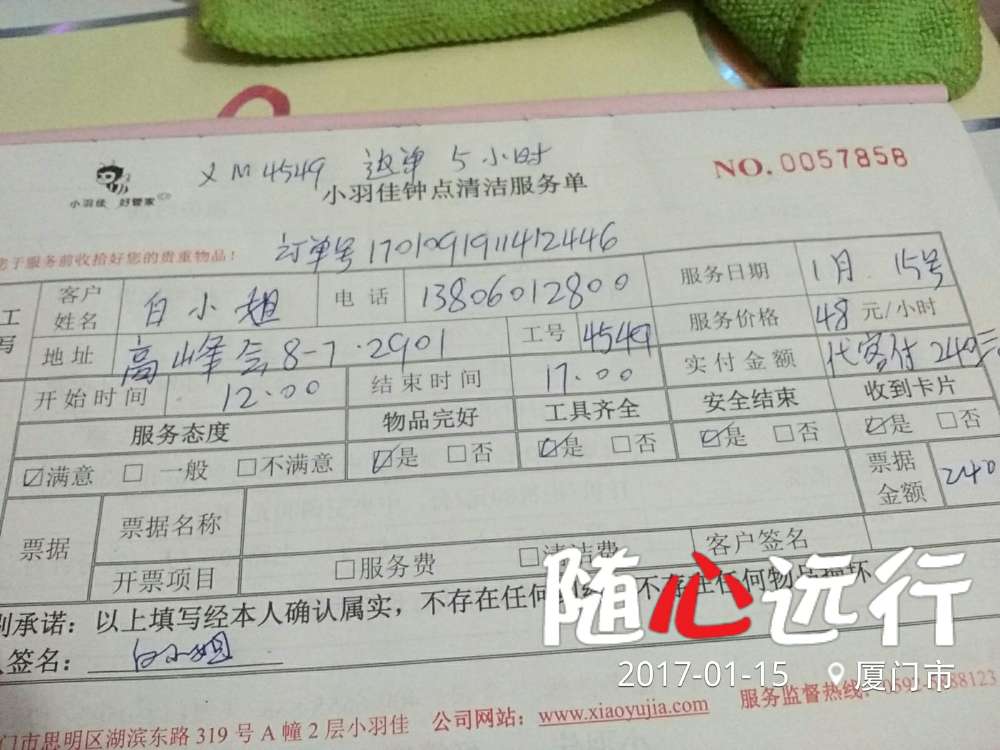 XM4549 返单 5小时
NO.0057858
小羽佳 好管家
小羽佳钟点清洁服务单
您于服务前收拾好您的贵重物品！
订单号170109191412446
工
写
客户姓名 白小姐 电话 13806012800 服务日期 1月 15号
地址 高峰会8-7.2901 工号 4549 服务价格 48元/小时
开始时间 12.00 结束时间 17.00 实付金额 代客付240元
服务态度 物品完好 工具齐全 安全结束 收到卡片
☑满意 □一般 □不满意 ☑是 □否 ☑是 □否 ☑是 □否 ☑是 □否
票据 票据名称 票据金额 240
开票项目 □服务费 □清洁费 客户签名
别承诺：以上填写经本人确认属实，不存在任何 不存在任何物品损坏
签名： 白小姐
随心远行
2017-01-15 厦门市
门市思明区湖滨东路 319 号 A 幢 2 层小羽佳 公司网站：www.xiaoyujia.com 服务监督热线：0592- 88123